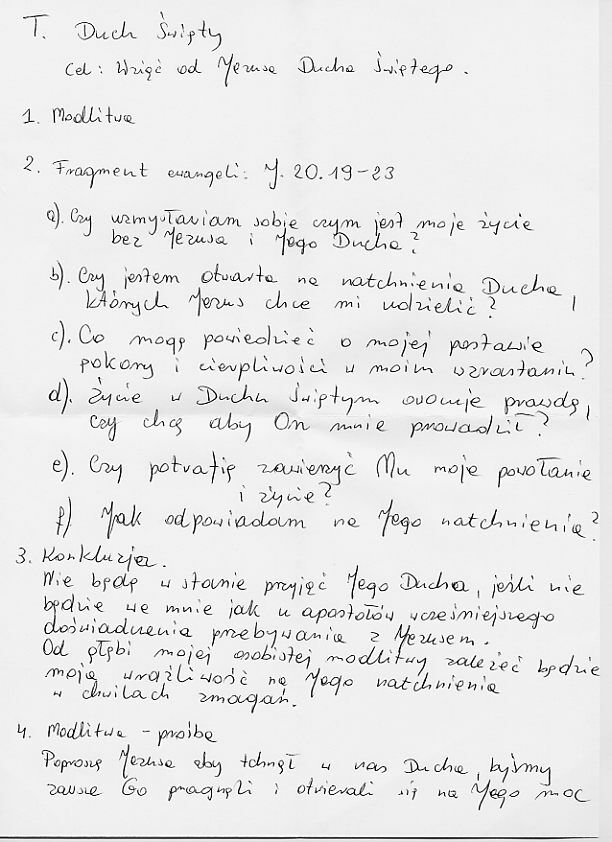 T. Duch Święty
Cel: Wziąć od Jezusa Ducha Świętego.
1. Modlitwa
2. Fragment ewangeli: J. 20.19-23
a). Czy uzmysławiam sobie czym jest moje życie
bez Jezusa i Jego Ducha?
b). Czy jestem otwarta na natchnienia Ducha,
których Jezus chce mi udzielić?
c). Co mogę powiedzieć o mojej postawie
pokory i cierpliwości w moim wzrastaniu?
d). Życie w Duchu Świętym owocuje prawdą,
czy chcę aby On mnie prowadził?
e). Czy potrafię zawierzyć Mu moje powołanie
i życie?
f) Jak odpowiadam na Jego natchnienia?
3. Konkluzja.
Nie będę w stanie przyjąć Jego Ducha, jeśli nie
będzie we mnie jak u apostołów wcześniejszego
doświadczenia przebywania z Jezusem.
Od głębi mojej osobistej modlitwy zależeć będzie
moja wrażliwość na Jego natchnienia
w chwilach zmagań.
4. Modlitwa - prośba
Poproszę Jezusa aby tchnął w nas Ducha, byśmy
zawsze Go pragnęli i otwierali się na Jego moc